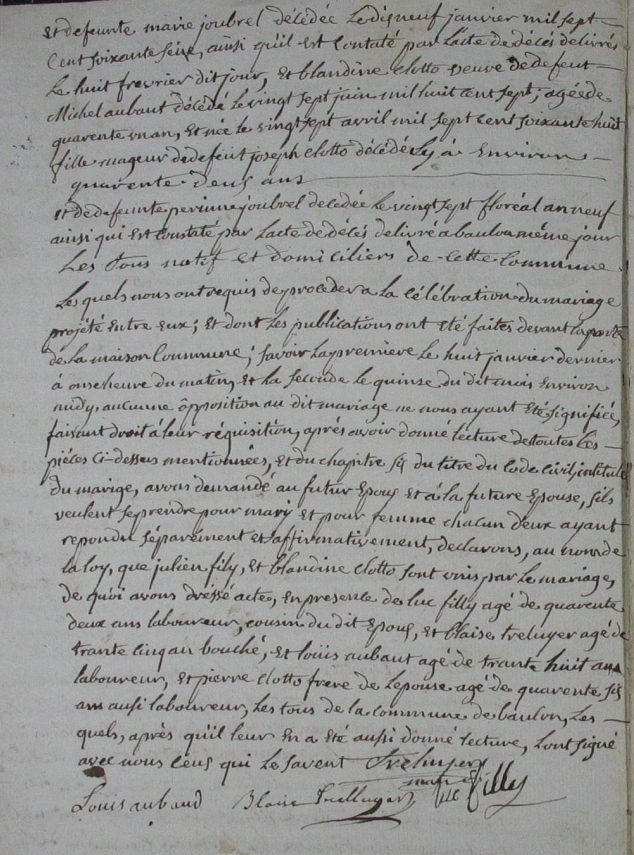 et defeunte marie joubrel décédée Le disneuf janvier mil sept
Cent soixante seise, ainsi qu'il est Contaté par Lacte de décés délivrés
Le huit frevrier dit jour, Et blandine Clotto veuve de defeut
Michel aubaut décédé le vingt sept juin mil huit cent sept; agée de
quarente un an, Et née le vingt sept avril mil sept Cent soixante huit
fille mageur de defeut joseph Clotto décédé il y a Environ
quarente deus ans
et de defeunte perinne joubrel decedée Le vingt sept floréal an neuf
ainsi qui Est Constaté par Lacte de décés delivré a baulon même jour
Les Tous natif et domiciliers de Cette Commune
Les quels nous ont requis de proceder a la Célébration du mariage
projété Entre eux; Et dont Les publications ont Eté faites devant la porte
de la maison Commune; savoir La premiere Le huit janvier dernier
à onse heure du matin, Et la seconde Le quinse du dit mois Environ
midy, aucunne ôpposition au dit mariage ne nous ayant Eté signifiée,
faisant droit à leur réquisition, aprés avoir donné lecture de toutes les
piéces Ci-dessus mentionnées, Et du chapitre six du titre du Code Civil intitulé
du marige, avons demandé au futur Epous Et à la future Epouse, s'ils
veulent se prendre pour mary Et pour femme chacun d'eux ayant
repondu séparément Et affirmativement, declarons, au nom de
la loy, que julien fily, Et blandine Clotto sont unis par Le mariage,
de quoi avons dréssé acte, En presence de luc filly agé de quarente
deux ans laboureur, cousin du dit Epous, Et blaise treluyer agé de
trante cinq an bouché, Et loüis aubaut agé de trante huit ans
laboureur, Et pierre Clotto frere de Lepouse agé de quarente six
ans ausi laboureur, Les tous de la commune de baulon, Les
quels, aprés qu'il leur En a Eté aussi donné lecture, L'ont signé
avec nous Ceus qui Le savent Trelluyer
maire
Louis aubaud Blaise Trelluyer luc filly